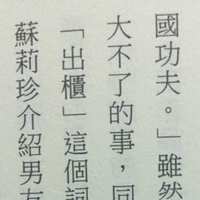 國功夫。」雖然
大不了的事,同
「出櫃」這個詞
蘇莉珍介紹男友